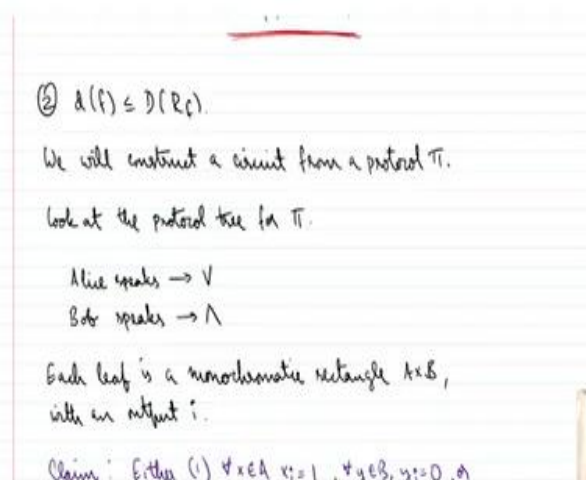 ② d(f) ≤ D(R_f).
We will construct a circuit from a protocol π.
Look at the protocol tree for π.
Alice speaks → ∨
Bob speaks → ∧
Each leaf is a monochromatic rectangle A×B,
with an output i.
Claim: Either (1) ∀x∈A x_i=1, ∀y∈B, y_i=0, or